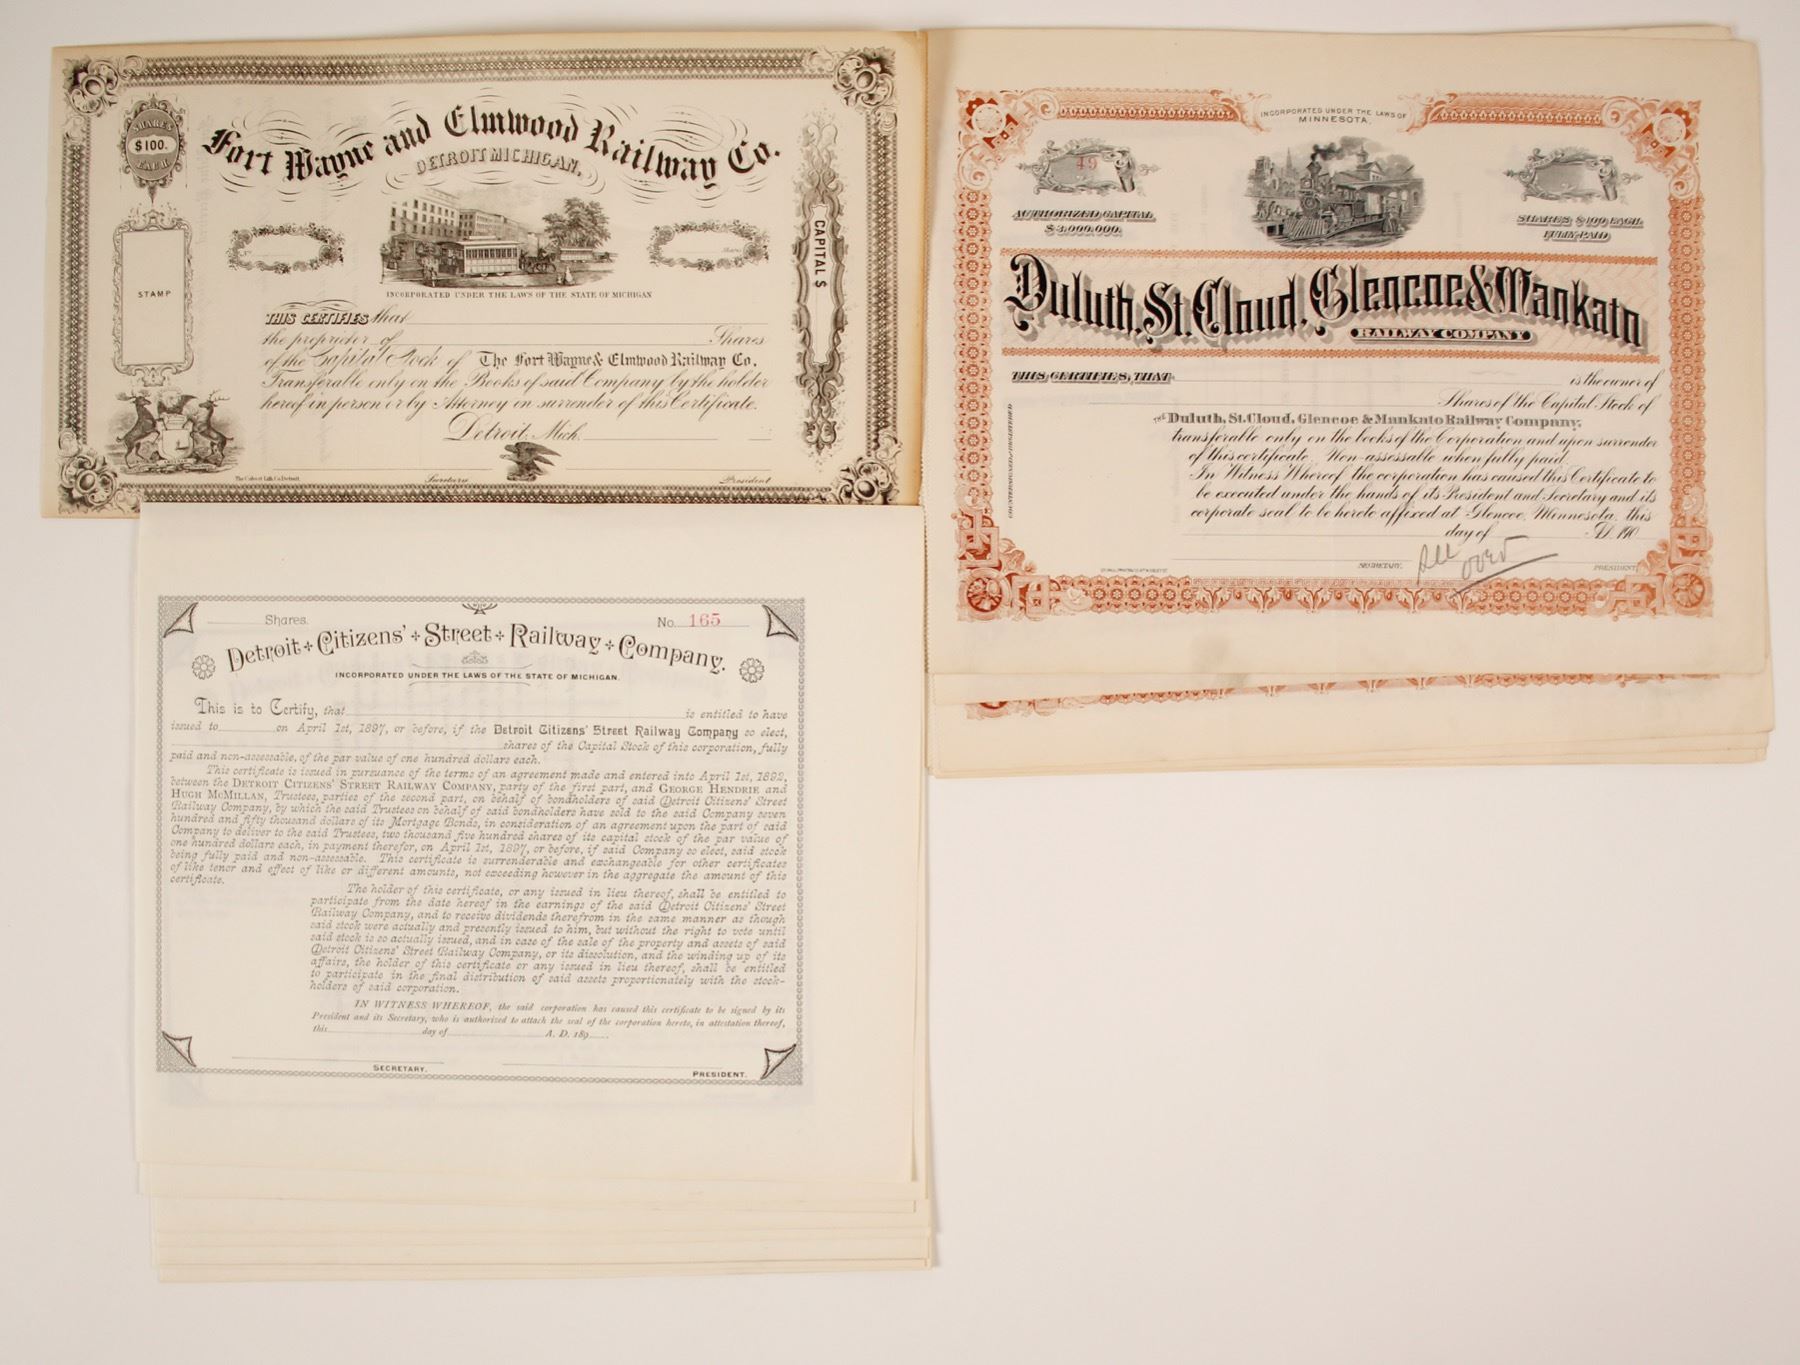 Fort Wayne and Elmwood Railway Co.
DETROIT MICHIGAN.
SHARES
$100.
EACH
STAMP
CAPITAL $
Shares
INCORPORATED UNDER THE LAWS OF THE STATE OF MICHIGAN
THIS CERTIFIES that
the proprietor of Shares
of the Capital Stock of The Fort Wayne & Elmwood Railway Co.
Transferable only on the Books of said Company by the holder
hereof in person or by Attorney on surrender of this Certificate.
Detroit, Mich.
The Calvert Lith. Co. Detroit
Secretary President
INCORPORATED UNDER THE LAWS OF
MINNESOTA.
49
AUTHORIZED CAPITAL
$3,000,000.
SHARES $100 EACH
FULL PAID
Duluth, St. Cloud, Glencoe & Mankato
RAILWAY COMPANY
THIS CERTIFIES, THAT is the owner of
Shares of the Capital Stock of
THE Duluth, St. Cloud, Glencoe & Mankato Railway Company,
transferable only on the books of the Corporation and upon surrender
of this certificate. Non-assessable when fully paid.
In Witness Whereof the corporation has caused this Certificate to
be executed under the hands of its President and Secretary and its
corporate seal to be hereto affixed at Glencoe, Minnesota, this
day of A.D. 190
COUNTERSIGNED & REGISTERED
SECRETARY. PRESIDENT
See over
Shares. No. 165
Detroit Citizens' Street Railway Company.
INCORPORATED UNDER THE LAWS OF THE STATE OF MICHIGAN.
This is to Certify, that is entitled to have
issued to on April 1st, 1897, or before, if the Detroit Citizens' Street Railway Company so elect,
shares of the Capital Stock of this corporation, fully
paid and non-assessable, of the par value of one hundred dollars each.
This certificate is issued in pursuance of the terms of an agreement made and entered into April 1st, 1892,
between the DETROIT CITIZENS' STREET RAILWAY COMPANY, party of the first part, and GEORGE HENDRIE and
HUGH MCMILLAN, Trustees, parties of the second part, on behalf of bondholders of said Detroit Citizens' Street
Railway Company, by which the said Trustees on behalf of said bondholders have sold to the said Company seven
hundred and fifty thousand dollars of its Mortgage Bonds, in consideration of an agreement upon the part of said
Company to deliver to the said Trustees, two thousand five hundred shares of its capital stock of the par value of
one hundred dollars each, in payment therefor, on April 1st, 1897, or before, if said Company so elect, said stock
being fully paid and non-assessable. This certificate is surrenderable and exchangeable for other certificates
of like tenor and effect of like or different amounts, not exceeding however in the aggregate the amount of this
certificate.
The holder of this certificate, or any issued in lieu thereof, shall be entitled to
participate from the date hereof in the earnings of the said Detroit Citizens' Street
Railway Company, and to receive dividends therefrom in the same manner as though
said stock were actually and presently issued to him, but without the right to vote until
said stock is so actually issued, and in case of the sale of the property and assets of said
Detroit Citizens' Street Railway Company, or its dissolution, and the winding up of its
affairs, the holder of this certificate or any issued in lieu thereof, shall be entitled
to participate in the final distribution of said assets proportionately with the stock-
holders of said corporation.
IN WITNESS WHEREOF, the said corporation has caused this certificate to be signed by its
President and its Secretary, who is authorized to attach the seal of the corporation hereto, in attestation thereof,
this day of A. D. 189 .
SECRETARY. PRESIDENT.